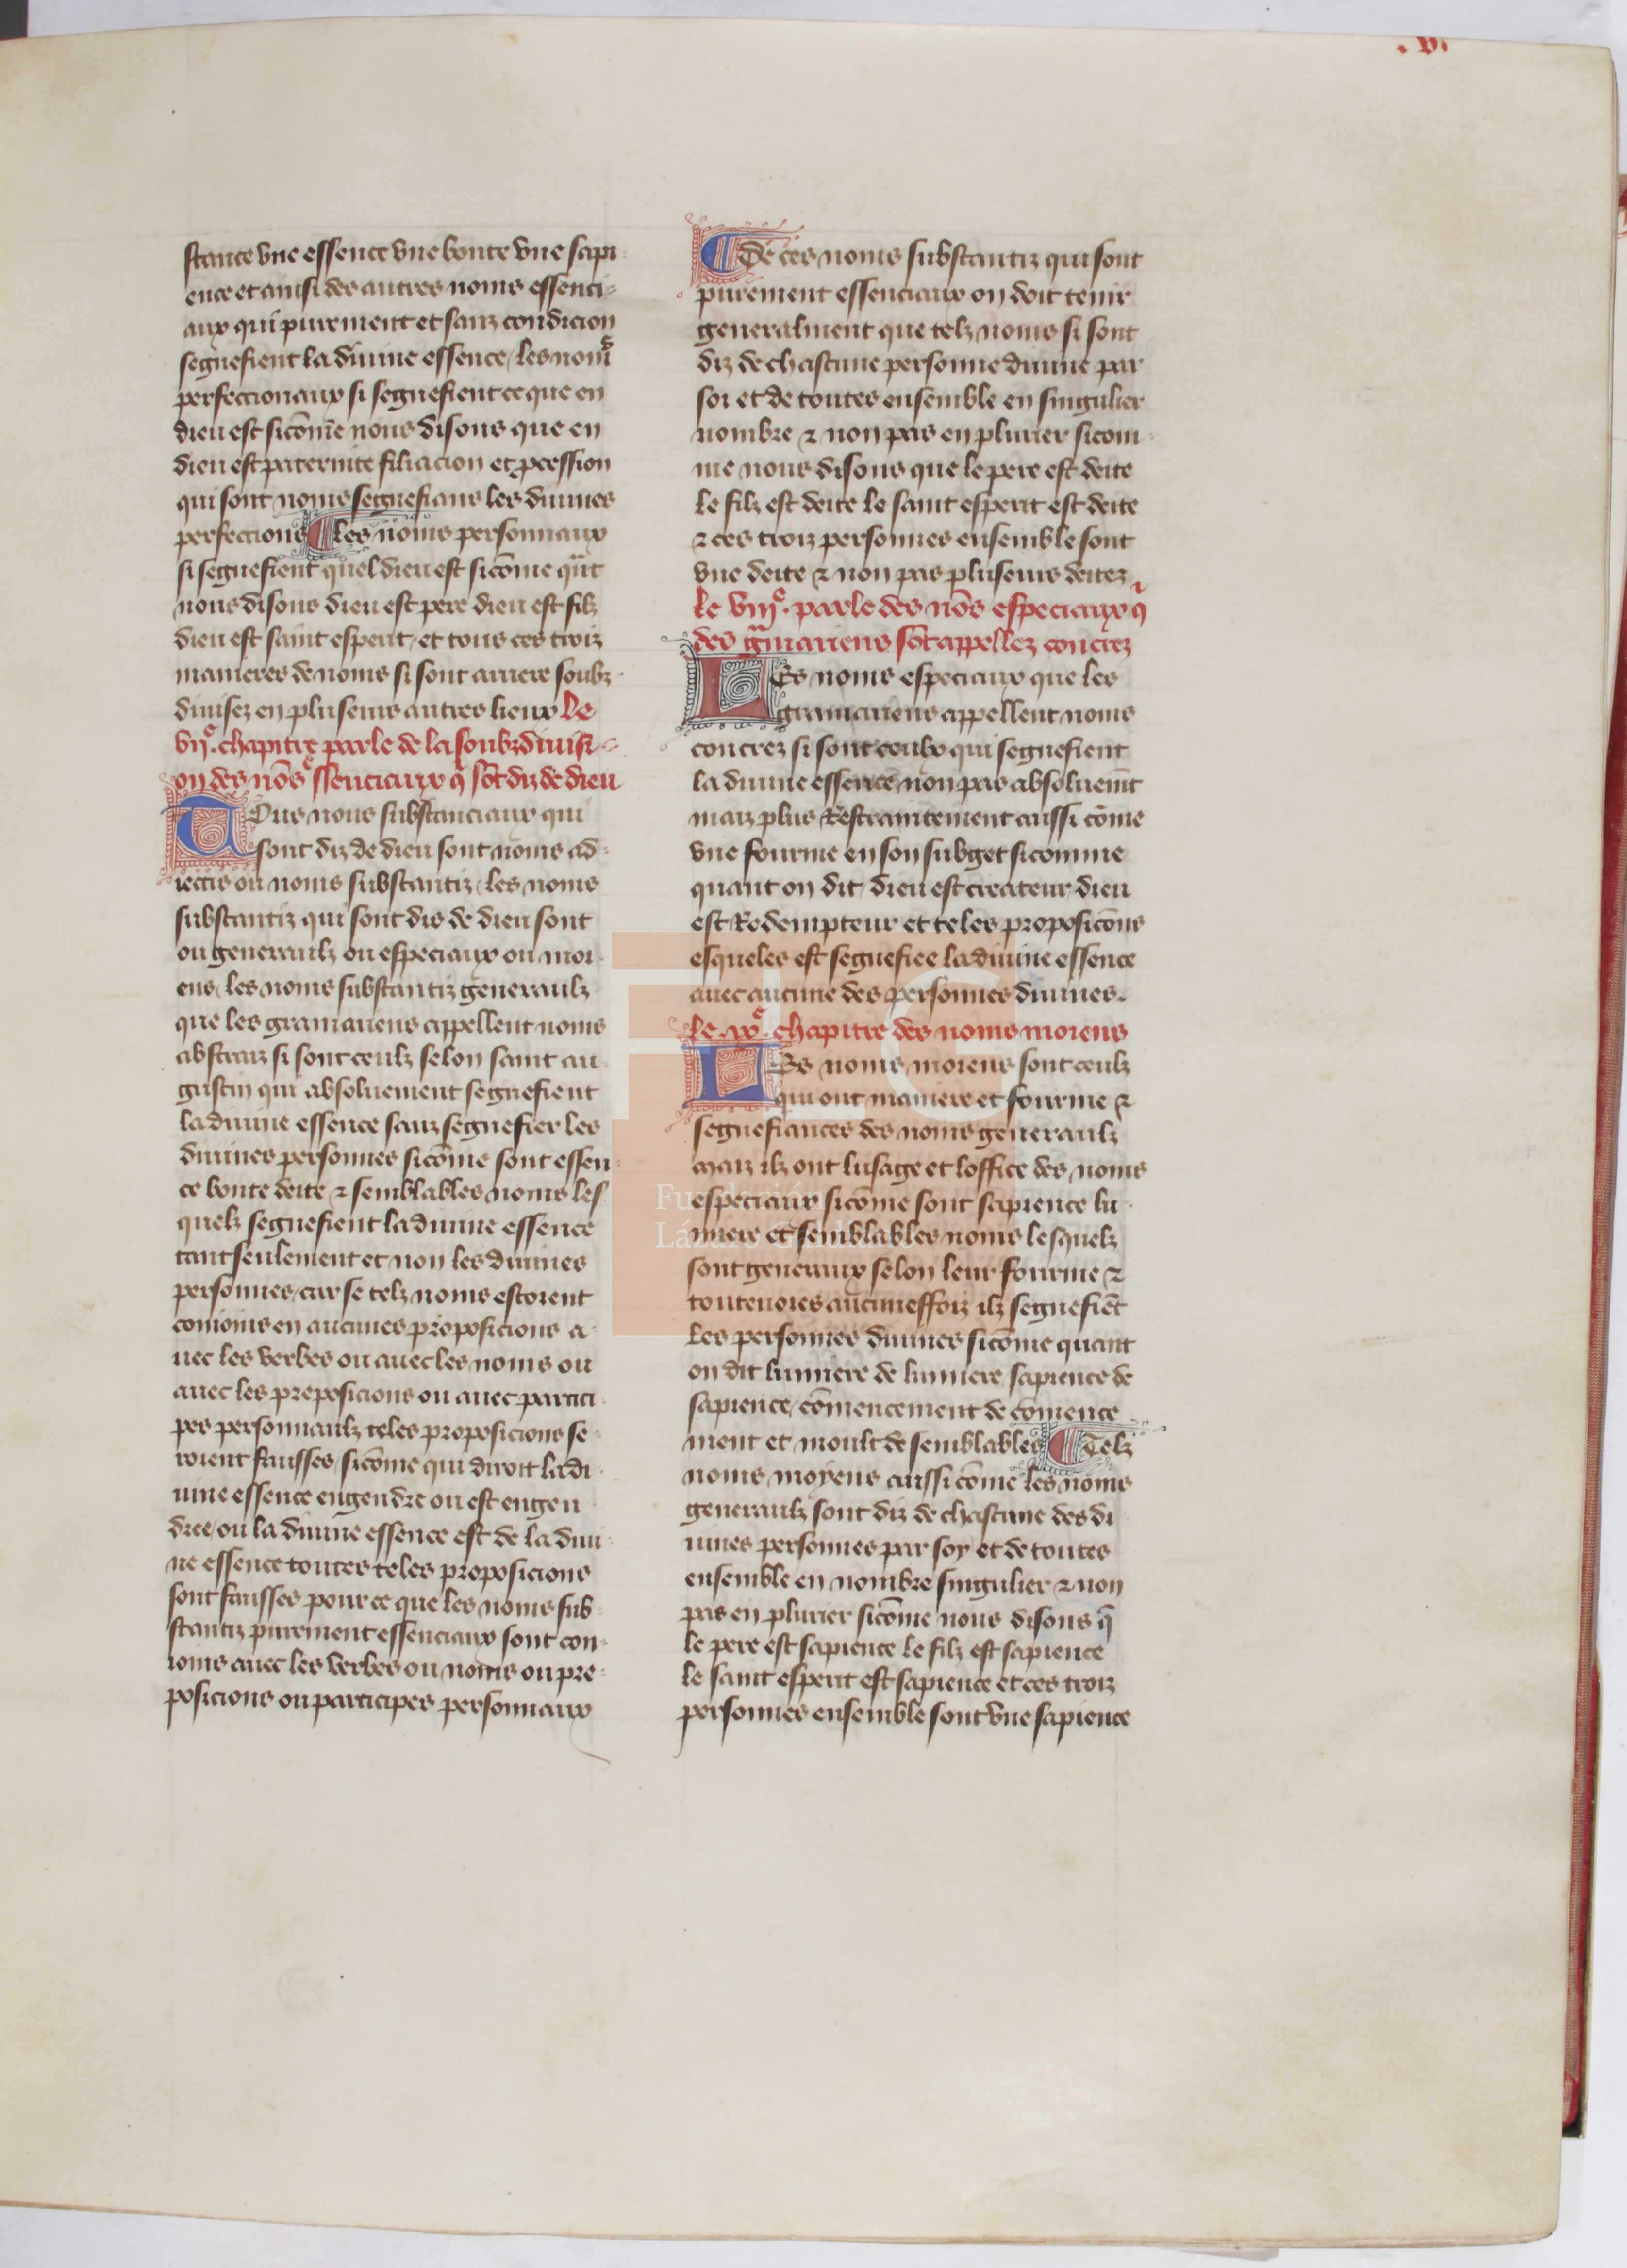 .vi.
stance vne essence vne bonte vne sapi
ence et ainsi des autres noms essenci-
aux qui purement et sanz condicion
seguefient la diuine essence/ les noms
perfeccionaux si seguefient ce que en
dieu est sicōme nous disons que en
dieu est paternite filiacion et pcession
qui sont noms seguefians les diuines
perfections ¶ les noms personnaux
si seguefient quel dieu est sicōme qᵃt
nous disons dieu est pere dieu est filz
dieu est saint esperit/ et tous ces troiz
manieres de noms si sont arriere soubz
diuisez en pluseurs autres lieux Le
vijᵉ. chapitre parle de la soubzdiuisi-
on des nōs essenciaux q̄ sōt diz de dieu
Tous nons substanciaux qui
sont diz de dieu sont noms ad-
iectis ou noms substantiz/ les noms
substantiz qui sont dis de dieu sont
ou generaulz ou especiaux ou moi
ens/ les noms substantiz generaulz
que les gramariens appellent noms
abstraiz si sont ceulz selon saint au
gustin qui absoluement seguefient
la diuine essence sanz seguefier les
diuines personnes sicōme sont essen-
ce bonte deite ⁊ semblables noms les
quelz seguefient la diuine essence
tant seulement et non les diuines
personnes/ car se telz noms estoient
conioins en aucunes proposicions a
uec les verbes ou auec les noms ou
auec les preposicions ou auec partici
pes personnaulz teles proposicions se
roient fausses/ sicōme qui diroit la di
uine essence engendre ou est engen
dree/ ou la diuine essence est de la diui
ne essence toutes teles proposicions
sont fausses pour ce que les noms sub
stantiz purement essenciaux sont con-
ioins auec les verbes ou noms ou pre-
posicions ou participes personnaux
¶ De ces noms substantiz qui sont
purement essenciaux on doit tenir
generalment que telz noms si sont
diz de chascune personne diuine par
soi et de toutes ensemble en singulier
nombre ⁊ non pas en plurier sicom
me nous disons que le pere est deite
le filz est deite le saint esperit est deite
⁊ ces troiz personnes ensemble sont
vne deite ⁊ non pas pluseurs deitez
Le viijᵉ. parle des nōs especiaux q̄
des gᵃmariens sōt appellez concrez
Les noms especiaux que les
gramariens appellent noms
concrez si sont ceulx qui seguefient
la diuine essence non pas absoluemt̄
maiz plus Restraintement aussi cōme
vne fourme en son subget sicomme
quant on dit dieu est createur dieu
est Redempteur et teles proposicōns
esqueles est seguefiee la diuine essence
auec aucune des personnes diuines.
Le .ixᵉ. chapitre des noms moiens
Les noms moiens sont ceulz
qui ont maniere et fourme ⁊
seguefiances des noms generaulz
maiz ilz ont lusage et loffice des noms
especiaux sicōme sont sapience lu
miere et semblables noms lesquelz
sont generaux selon leur fourme ⁊
toutenoies aucuneffoiz ilz seguefiēt
les personnes diuines sicōme quant
on dit lumiere de lumiere sapience de
sapience/ cōmencement de cōmence
ment et moult de semblables ¶ Telz
noms moyens aussi cōme les noms
generaulz sont diz de chascune des di
uines personnes par soy et de toutes
ensemble en nombre singulier ⁊ non
pas en plurier sicōme nous disons q̄
le pere est sapience le filz est sapience
le saint esperit est sapience et ces troiz
personnes ensemble sont vne sapience